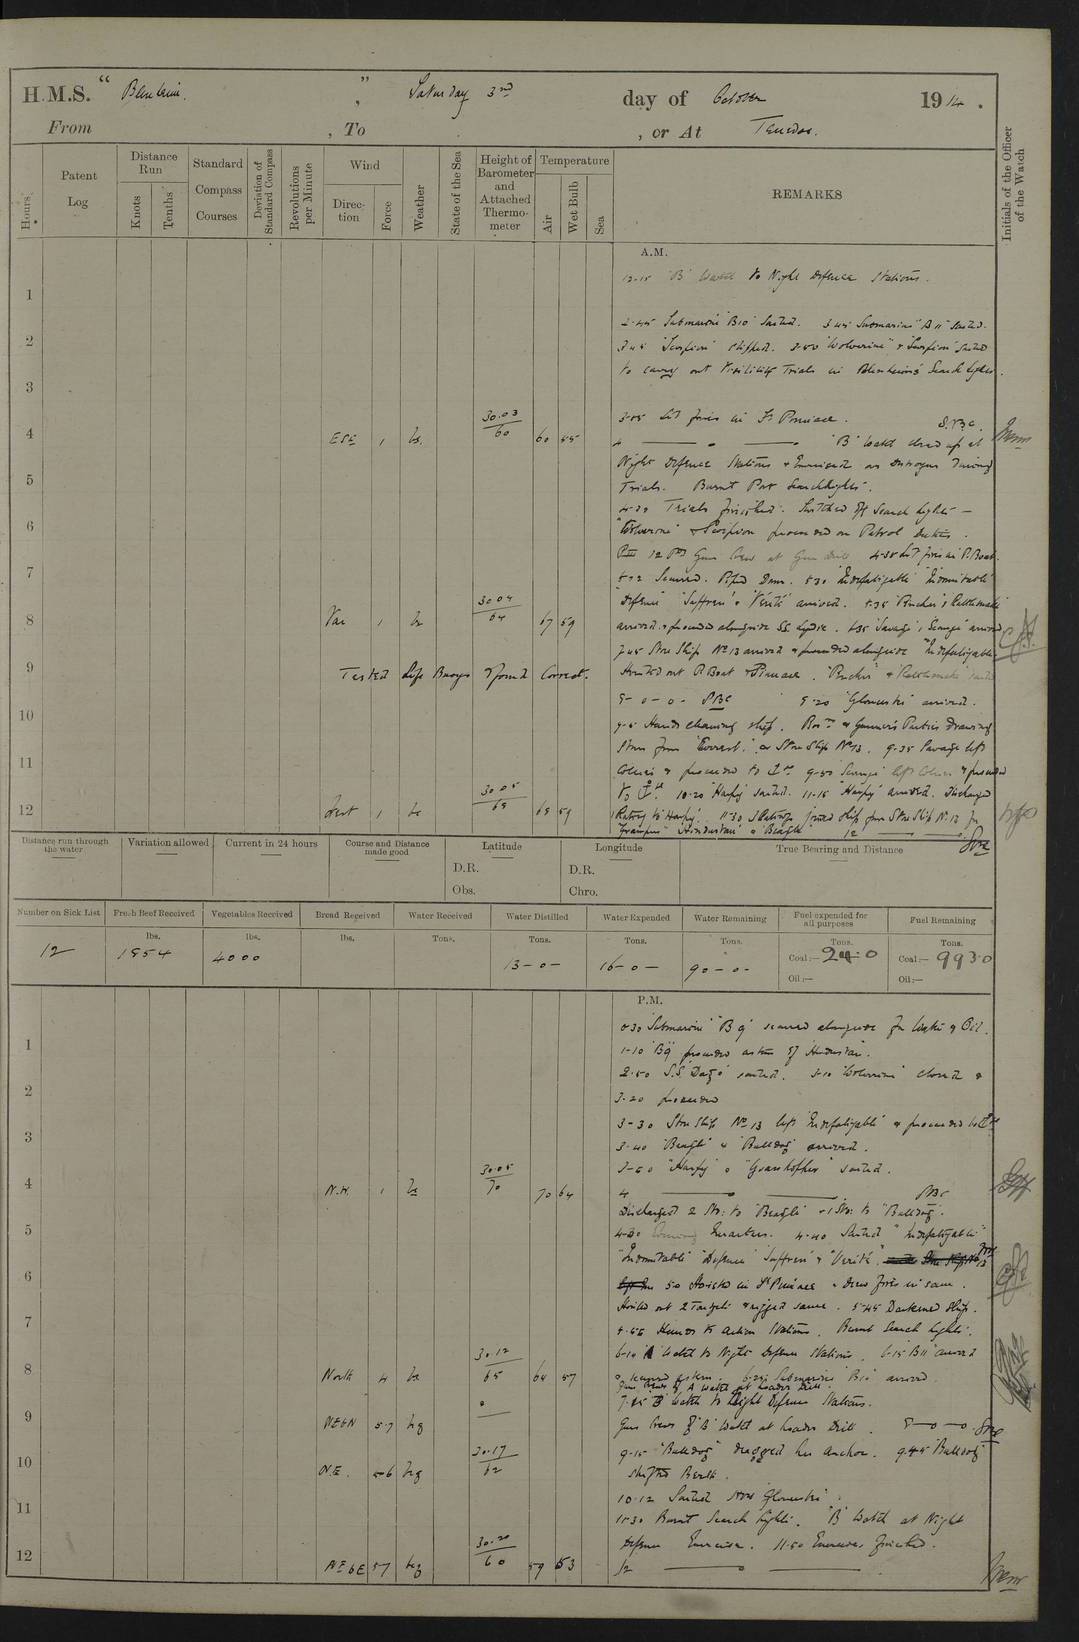 H.M.S. “ Blenheim ” , Saturday 3rd day of October 1914 .
From , To , or At Tenedos.
Hours.
Patent Log
Distance Run
Knots
Tenths
Standard Compass Courses
Deviation of Standard Compass
Revolutions per Minute
Wind
Direction
Force
Weather
State of the Sea
Height of Barometer and Attached Thermometer
Temperature
Air
Wet Bulb
Sea
REMARKS
Initials of the Officer of the Watch
A.M.
12-15 'B' Watch to Night Defence Stations.
1
2-45 Submarine 'B10' Sailed. 3.45 Submarine 'B11' Sailed.
2
3.45 'Scorpion' slipped. 3-50 'Wolverine' & 'Scorpion' Sailed
to carry out Visibility Trials in Blenheim's Search lights.
3
3-05 Lit fires in St Pinnace. S.B.C.
4 ESE 1 bc. 30.03 60 60 55 4 'B' Watch closed up at
Night Defence Stations & Exercised as Destroyers during
5
Trials. Burnt Port Searchlights.
4-30 Trials finished. Switched off Search lights —
6
'Wolverine' & Scorpion proceeded on Patrol Duties.
12 Pdr Gun Crew at Gun drill 4-30 Lit fires in P. Boat.
7
Secured. Piped Down. 5.30 'Indefatigable' 'Indomitable'
'Defence' 'Suffren' & 'Verité' arrived. 5.35 'Pincher' & Rattlesnake
8 Var 1 bc 30.04 64 67 59 arrived & proceeded alongside SS. 'Savage', 'Scourge' arrived
7-45 Store Ship No 13 arrived & proceeded alongside 'Indefatigable'
9 Tested Life Buoys & found Correct. Hoisted out P. Boat & Pinnace. 'Pincher' & Rattlesnake sailed
9-20 'Gloucester' arrived.
10
Hands cleaning ship. Bosns & Gunners Parties Drawing
Stores from 'Everest' & Store Ship No 13. 9.35 Savage left
11
Colliers & proceeded to 9-50 'Scourge' left Collier & proceeded
to 10-20 'Harpy' sailed. 11-15 'Harpy' arrived. Discharged
12 West 1 bc 30.05 68 68 59 Rating to Harpy. 11-30 Ratings joined ship from Store Ship No 13 for
'Grampus' 'Hindustan' & Beagle 12
Distance run through the water
Variation allowed
Current in 24 hours
Course and Distance made good
Latitude
D.R.
Obs.
Longitude
D.R.
Chro.
True Bearing and Distance
Number on Sick List
Fresh Beef Received
Vegetables Received
Bread Received
Water Received
Water Distilled
Water Expended
Water Remaining
Fuel expended for all purposes
Fuel Remaining
lbs. lbs. lbs. Tons. Tons. Tons. Tons. Tons. Tons.
12 1854 4000 13-0- 16-0- 90-0- Coal:— 24.0 Coal:— 993.0
Oil:— Oil:—
P.M.
0-30 Submarine 'B9' secured alongside for Water & Oil.
1
1-10 'B9' proceeded astern of Hindustan.
2
2-50 S.S. sailed. 3-10 'Wolverine' closed &
3.20 proceeded
3
3-30 Store Ship No 13 left 'Indefatigable' & proceeded to
3-40 'Beagle' & 'Bulldog' arrived.
3-50 'Harpy' & 'Grasshopper' sailed.
4 N.W. 1 bc 30.05 70 70 64 4
Discharged 2 Sto: to 'Beagle' & 1 Sto: to 'Bulldog'.
5
4-30 Evening Quarters. 4.40 Sailed 'Indefatigable'
'Indomitable' 'Defence' 'Suffren' & 'Verité'.
6
5.0 Hoisted in St Pinnace & drew fires in same.
Hoisted out 2 Targets & rigged same. 5-45 Darkened Ship.
7
5-55 Hands to Action Stations. Burnt Search lights.
6-10 'A' Watch to Night Defence Stations. 6-15 'B11' arrived
8 North 4 bc 30.12 65 64 57 & secured astern. Submarine 'B10' arrived.
Gun Crews of A Watch at Loader Drill.
7.15 'B' Watch to Night Defence Stations.
9 NEbN 5.7 bcg Gun Crews of 'B' Watch at Loader Drill. 8
9-15 'Bulldog' dragged her anchor. 9.45 Bulldog
10 N.E. 5-6 bcg 30.17 62 shifted Berth.
10-12 Sailed HMS 'Gloucester'.
11
11-30 Burnt Search lights. 'B' Watch at Night
Defence Exercise. 11.50 Exercises finished.
12 NEbE 5.7 bcg 30.20 60 59 53 12